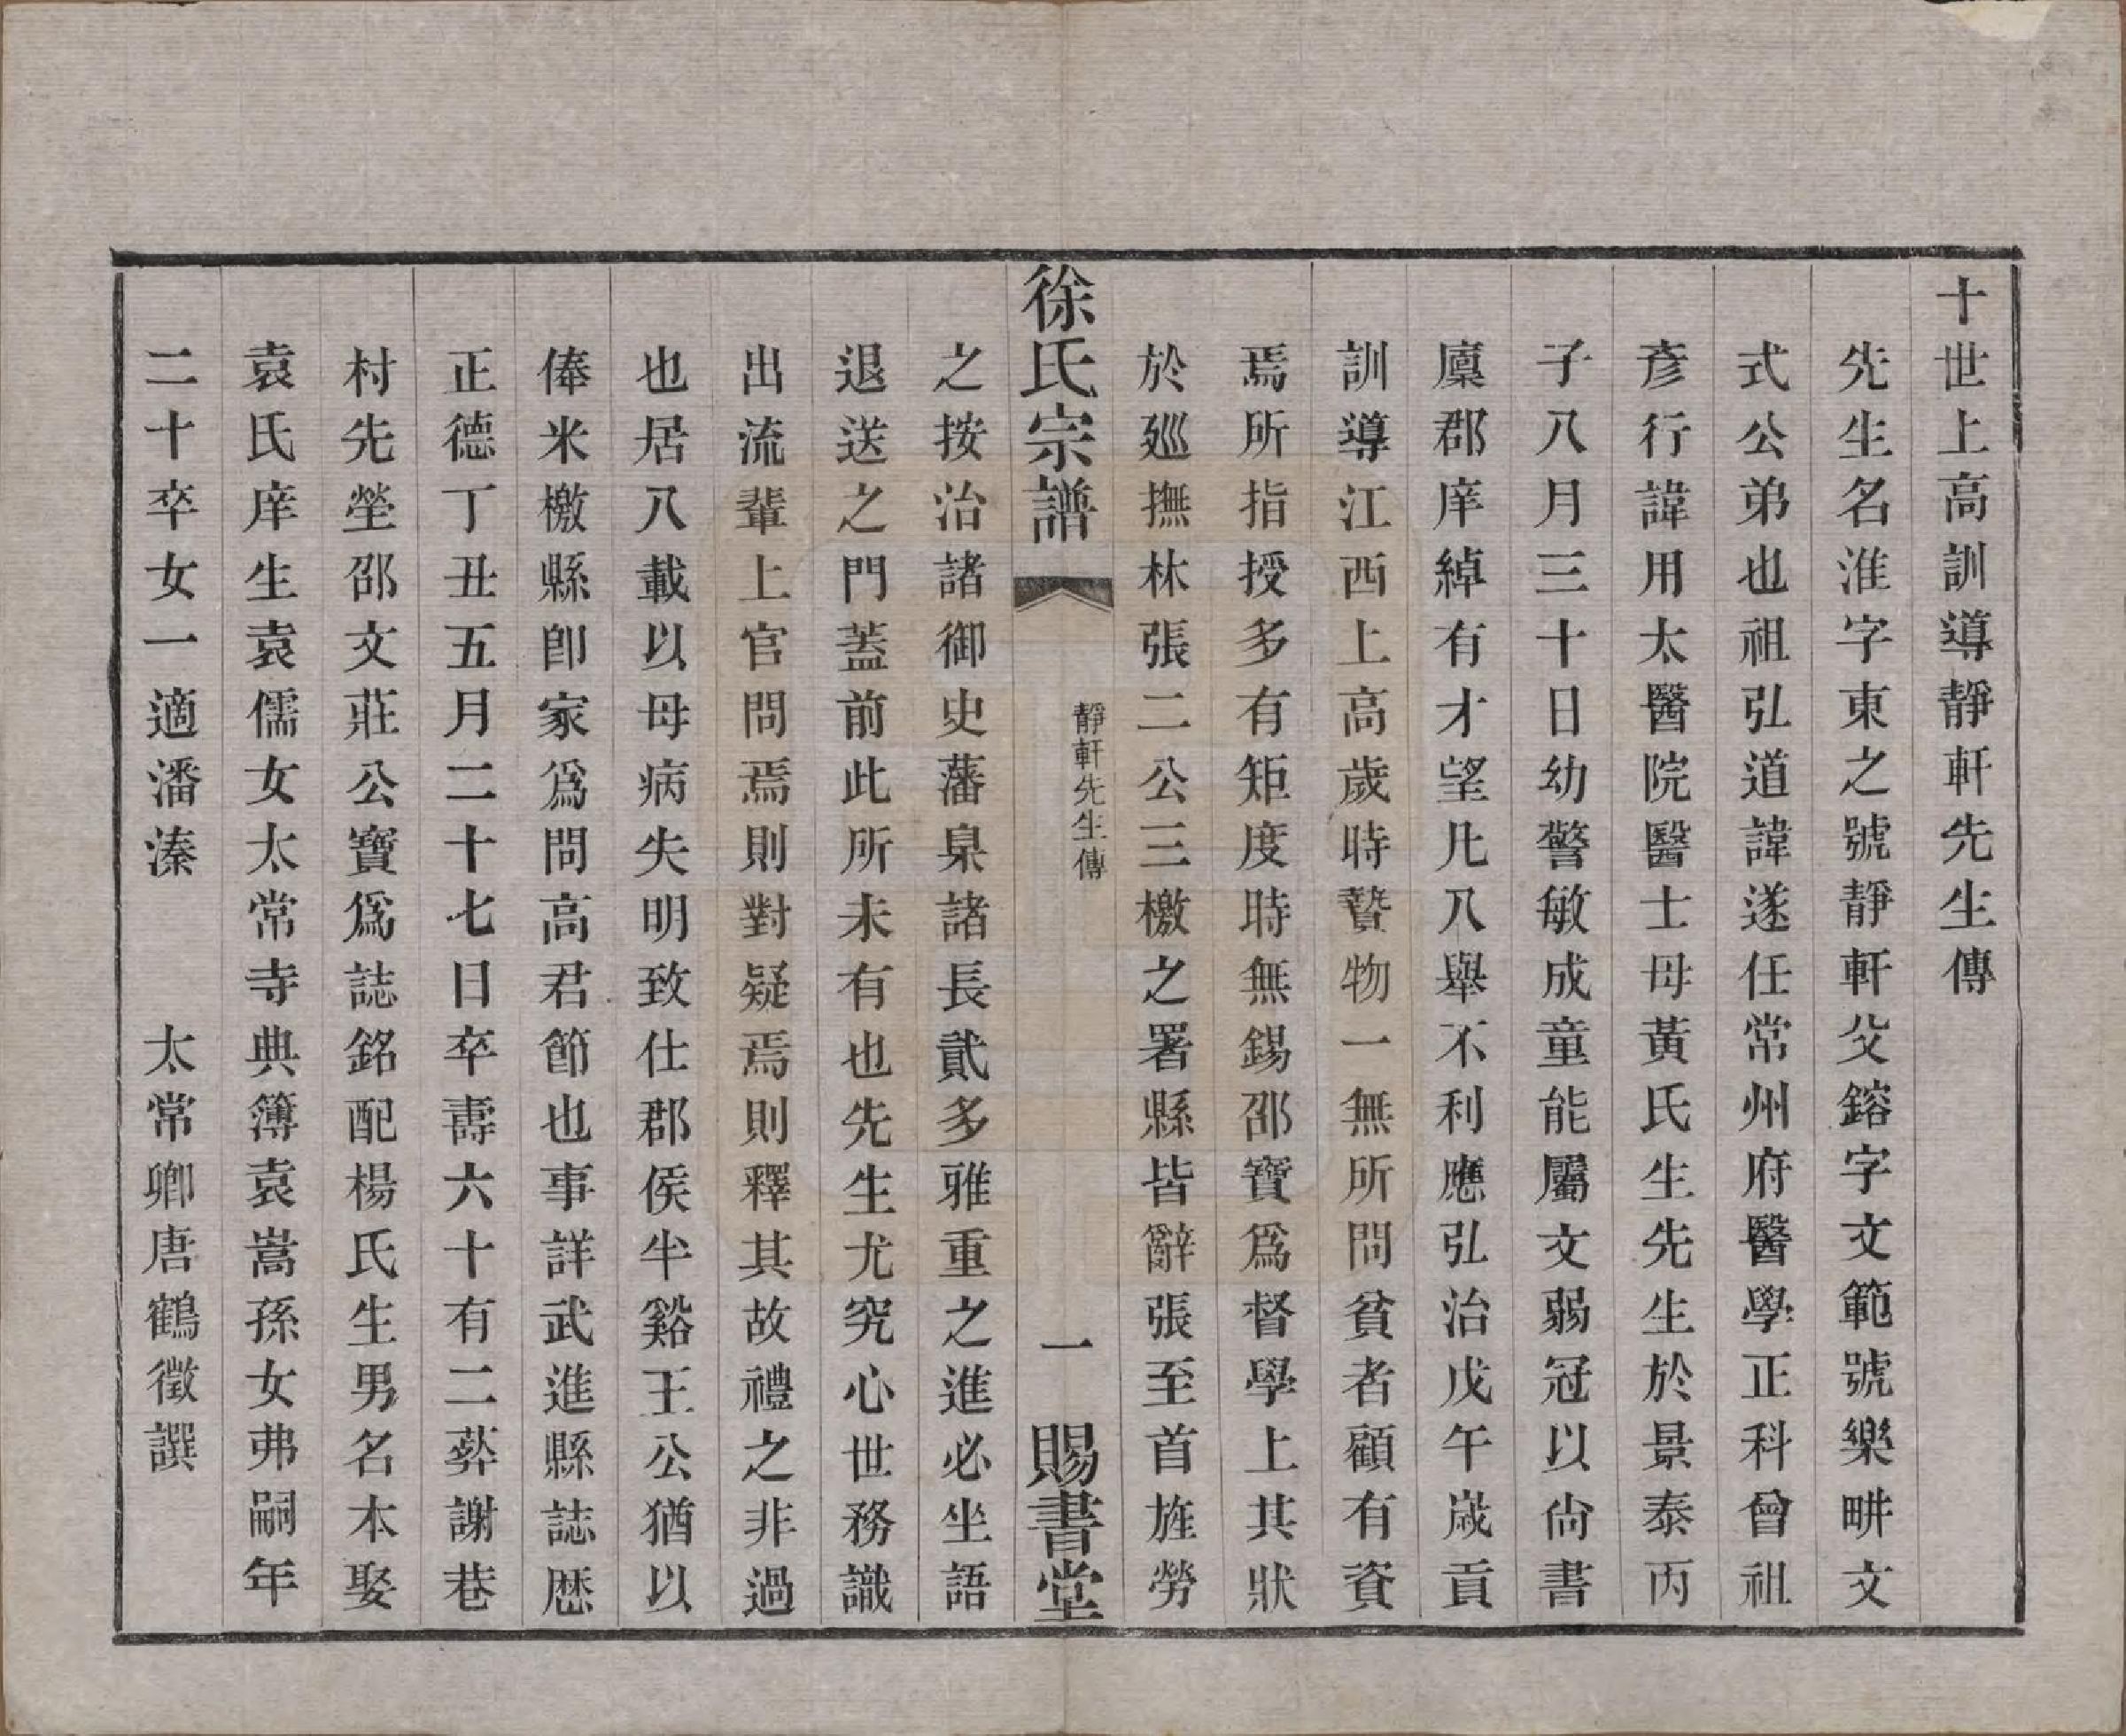 十世上高訓導靜軒先生傳
先生名淮字東之號靜軒父鎔字文範號樂畊文
式公弟也祖弘道諱遂任常州府醫學正科曾祖
彥行諱用太醫院醫士母黃氏生先生於景泰丙
子八月三十日幼警敏成童能屬文弱冠以尙書
廩郡庠綽有才望凡八舉不利應弘治戊午歲貢
訓導江西上高歲時贄物一無所問貧者顧有資
焉所指授多有矩度時無錫邵寶爲督學上其狀
於廵撫林張二公三檄之署縣皆辭張至首旌勞
徐氏宗譜
靜軒先生傳
一
賜書堂
之按治諸御史藩臬諸長貳多雅重之進必坐語
退送之門蓋前此所未有也先生尤究心世務識
出流輩上官問焉則對疑焉則釋其故禮之非過
也居八載以母病失明致仕郡侯半谿王公猶以
俸米檄縣卽家爲問高君節也事詳武進縣誌歷
正德丁丑五月二十七日卒壽六十有二葬謝巷
村先塋邵文莊公寶爲誌銘配楊氏生男名本娶
袁氏庠生袁儒女太常寺典簿袁嵩孫女弗嗣年
二十卒女一適潘溱　　太常卿唐鶴徵譔